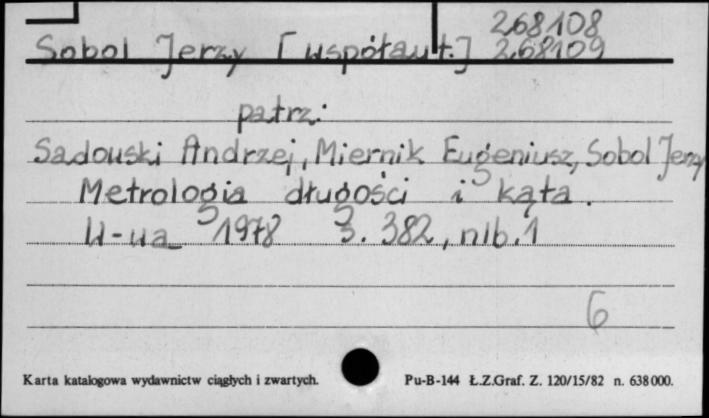 268108
Sobol Jerzy [współaut.] 268109
patrz:
Sadowski Andrzej, Miernik Eugeniusz, Sobol Jerzy
Metrologia długości i kąta.
W-wa 1978 s. 382, nlb. 1
6
Karta katalogowa wydawnictw ciągłych i zwartych. Pu-B-144 Ł.Z.Graf. Z. 120/15/82 n. 638000.